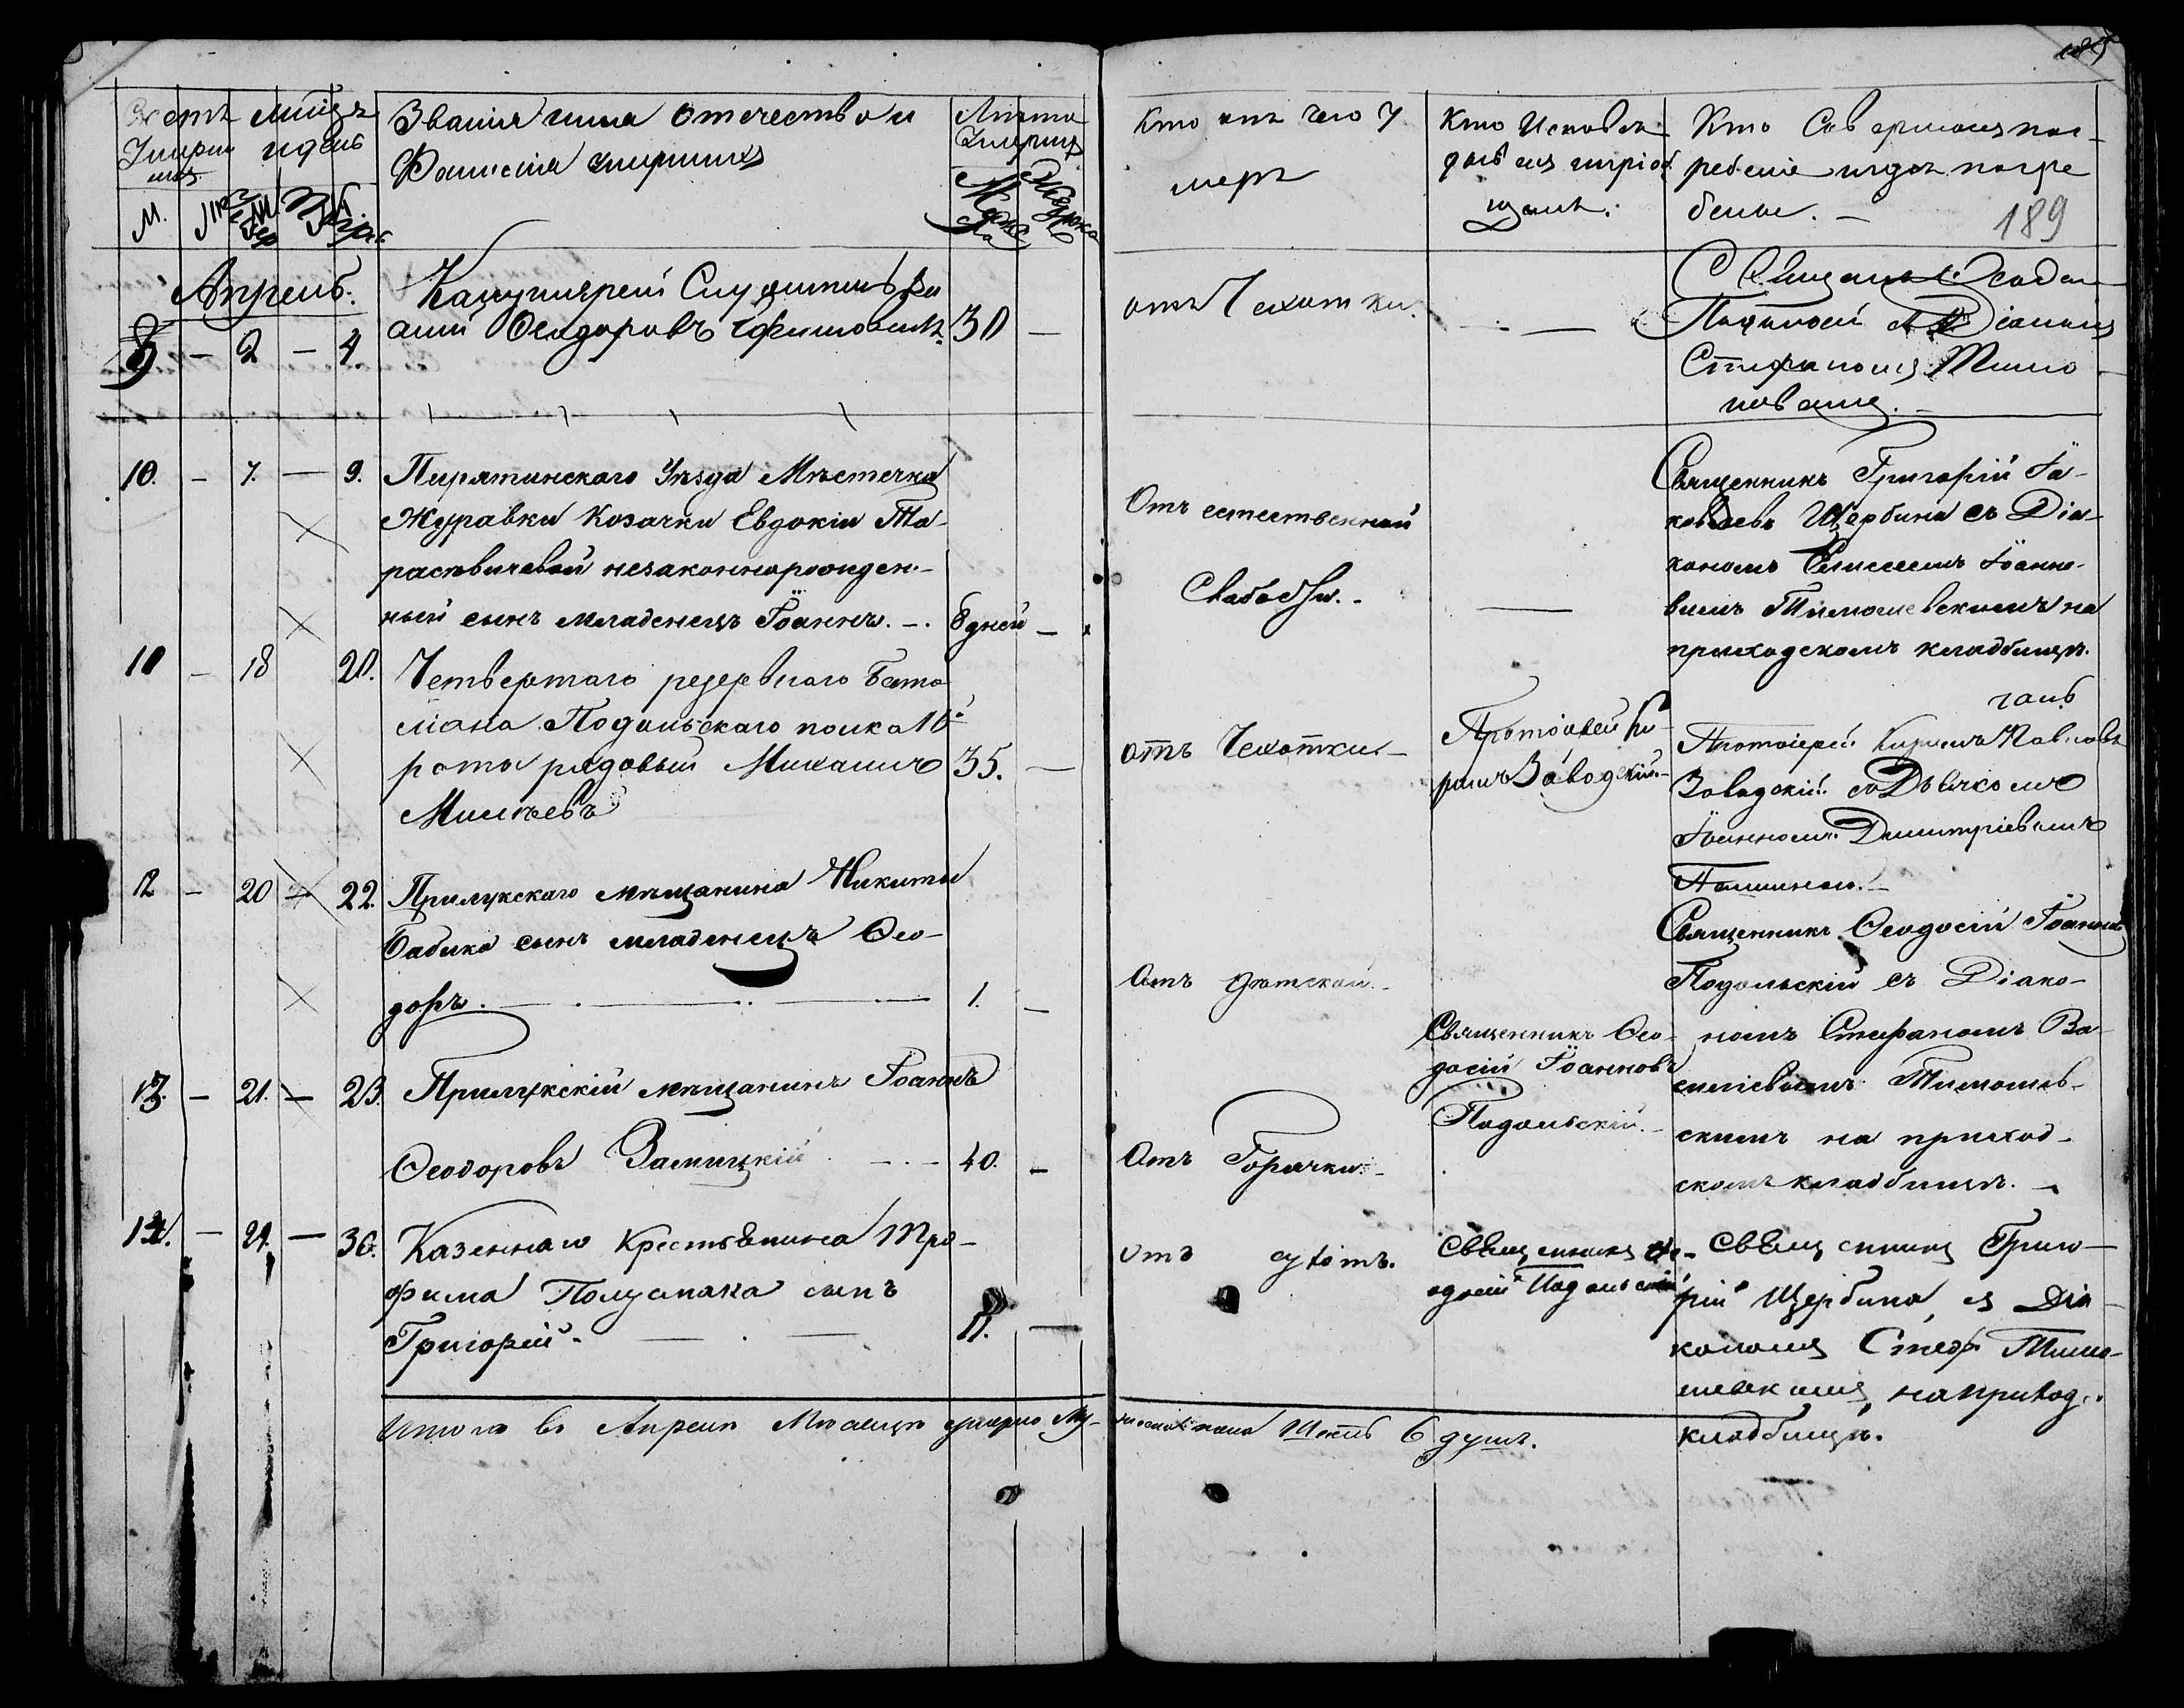 189
Счетъ Умерш мѣсяцъ и день
Званія имя отечество и
Фамилія умершихъ
Лѣта
Умершихъ
Кто отъ чего у
меръ
Кто Исповѣ
далъ и пріоб
щалъ.
Кто Совершалъ пог
ребеніе и гдѣ погре
бены.
189
М.
Апрель.
9 — 2 — 4.
Феодоровъ Ефимовичъ 30 —
отъ Чехотки.
10. — 7. — 9. Пирятинскаго Уѣзда Мѣстечка
Журавки Козачки Евдокіи Та-
расѣвичевой незаконнорожден-
ный сынъ младенецъ Іоаннъ. 8 дней —
Отъ естественной
Слабости.
Священникъ Григорій Іа-
ковлевъ Щербина съ Діа-
кономъ Елисеемъ Іоанно-
вымъ Тимошевскимъ на
приходскомъ кладбищѣ.
11 — 18 20. Четвертаго резервнаго Бата
ліона Подольскаго полка 10й
роты рядовый Михаилъ 35. —
Михѣевъ
отъ Чехотки
Протоіерей Ки
рилъ Завадскій.
Протоіерей Кирилъ Павловъ
Завадскій съ Дьячкомъ
Іоанномъ Димитріевымъ
12 — 20 — 22. Прилукскаго мѣщанина Никиты
Бабика сынъ младенецъ Ѳео-
доръ. 1. —
Отъ дѣтской.
Священникъ Ѳеодосій Іоанновъ
Подольскій съ Діако-
номъ Стефаномъ Ва
силіевымъ Тимошев-
скимъ на приход-
скомъ кладбищѣ.
13. — 21. — 23. Прилукскій мѣщанинъ Іоаннъ
Ѳеодоровъ 40. —
Отъ Горячки.
Священникъ Ѳео-
досій Іоанновъ
Подольскій.
14. — 29. — 30. Казеннаго крестьянина Тро-
фима сынъ
Григорій. 11. —
отъ
Священникъ Ѳе-
одосій Подольскій
Священникъ Григо-
рій Щербина съ Діа
кономъ Стеф Тимо-
шевскимъ на приход.
кладбищѣ.
Итого въ Апрелѣ Мѣсяцѣ умерло Му- жеска пола Шесть 6 душъ.